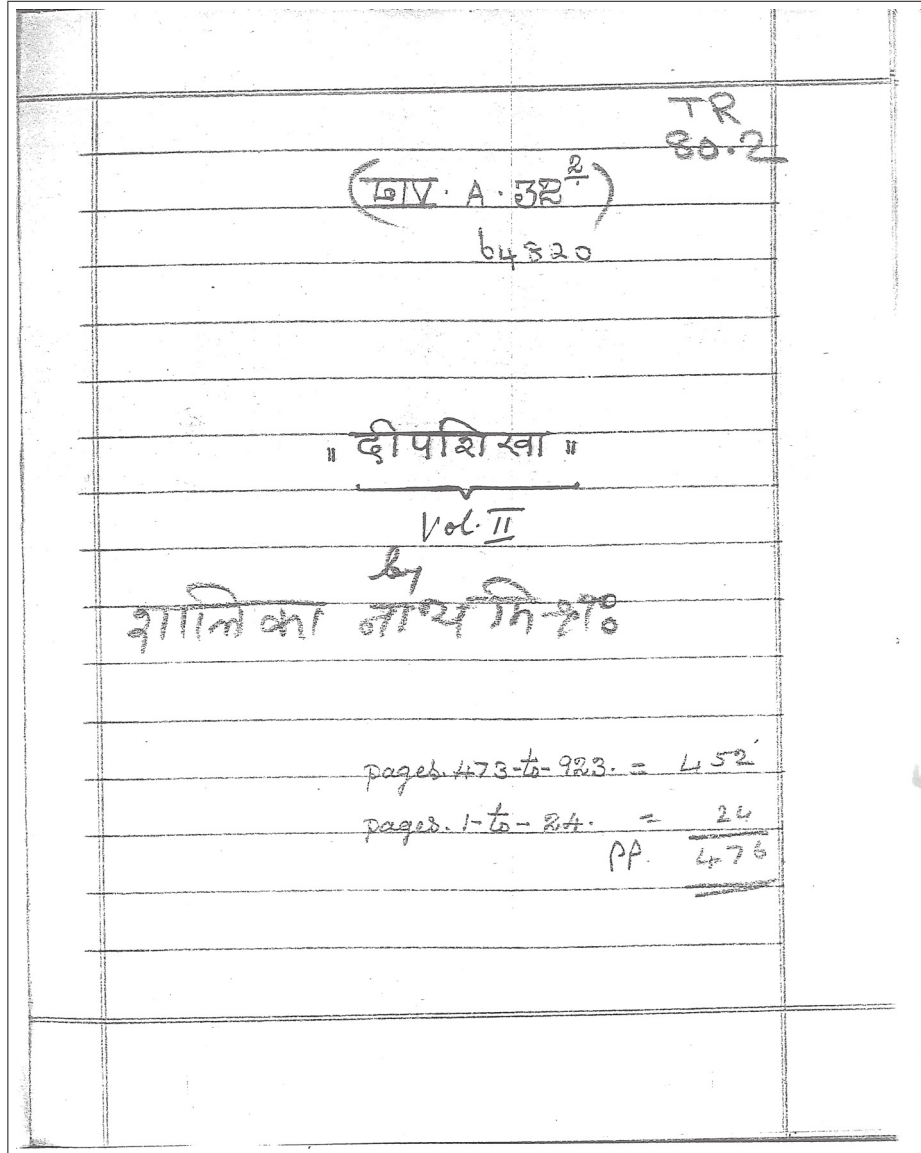 TR
80.2
A. 32 2
64820
॥ दीपशिखा ॥
Vol. II
by
शालिका नाथ मिश्रः
pages. 473-to-923. = 452
pages. 1-to-24. = 24
pp. 476